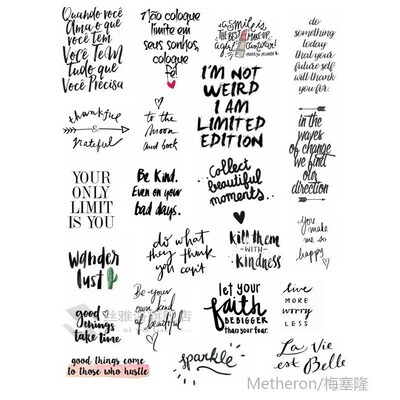 Quando você
Ama o que
você Tem
Você Tem
Tudo que
Você Precisa
Não coloque
limite em
seus sonhos,
coloque
Fé!
a Smile is
THE BEST MAKE-UP
a girl can wear!
do
something
today
that your
future self
will thank
you for.
I'M NOT
WEIRD
I AM
LIMITED
EDITION
thankful
&
grateful
to the
moon
and back
in the
waves
of change
we find
our
direction
YOUR
ONLY
LIMIT
IS YOU
Be kind.
Even on your
bad days.
collect
beautiful
moments
wander
lust
do what
they think
you can't
kill them
-WITH-
kindness
you
make
me so
happy
good
things
take time
Be your
own kind
of beautiful
let your
faith
BE BIGGER
than your fear.
live
MORE
worry
LESS
good things come
to those who hustle
sparkle
La Vie
est Belle
Metheron/梅塞隆